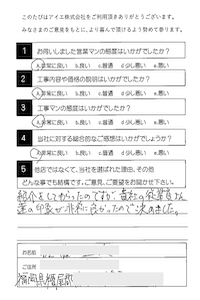 このたびはアイエ株式会社をご利用頂きありがとうございます。
みなさまのご意見をもとに、より喜んで頂けるよう努めて参ります。
1 お伺いしました営業マンの態度はいかがでしたか?
a.非常に良い b.良い c.普通 d.少し悪い e.悪い
2 工事内容や価格の説明はいかがでしたか?
a.非常に良い b.良い c.普通 d.少し悪い e.悪い
3 工事マンの態度はいかがでしたか?
a.非常に良い b.良い c.普通 d.少し悪い e.悪い
4 当社に対する総合的なご感想はいかがでしょうか?
a.非常に良い b.良い c.普通 d.少し悪い e.悪い
5 他店ではなくて、当社を選ばれた理由、その他
どんな事でも結構です。ご意見、ご要望をお聞かせ下さい。
紹介をしてもらったのですが、貴社の従業員さん
達の印象が非常に良かったので決めました。
お名前
ご住所
福岡県糟屋郡